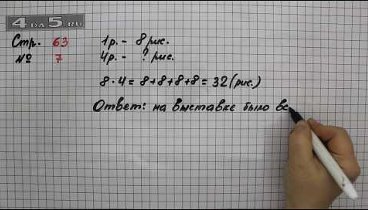 4na5.ru
Стр. 63
№ 7
1р. - 8 рис.
4р. - ? рис.
8 · 4 = 8+8+8+8 = 32 (рис.)
Ответ: на выставке было вс